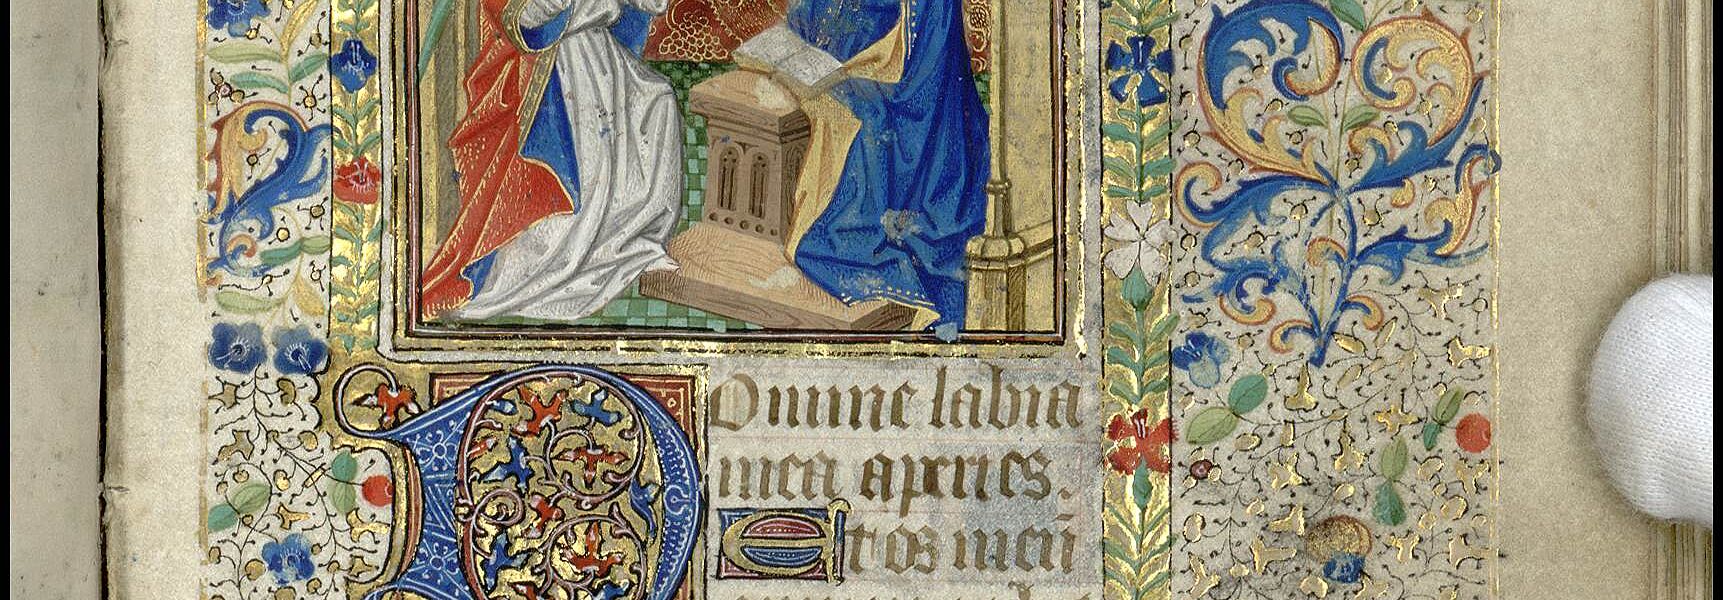 DOmine labia
mea aperies.
Et os meū